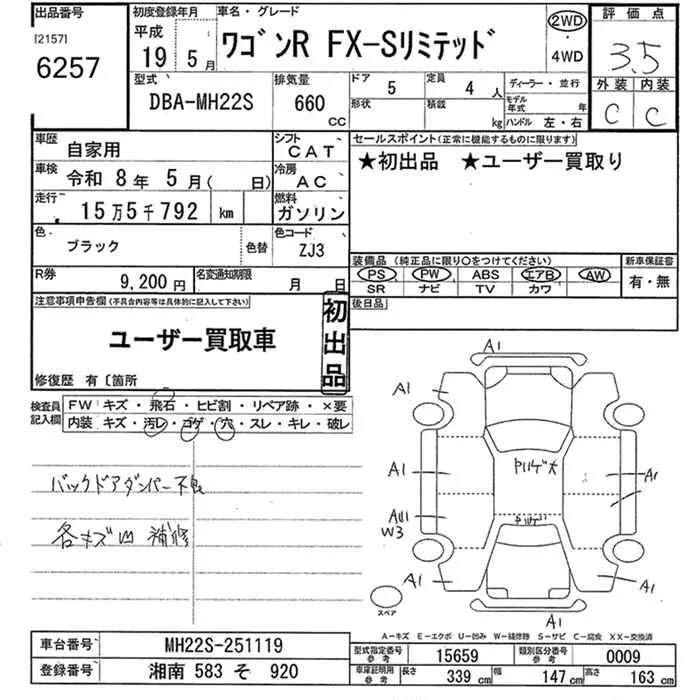 出品番号
[2157]
6257
初度登録年月
平成
19年 5月
車名・グレード
ワゴンR FX-Sリミテッド
2WD
・
4WD
評価点
3.5
外装 内装
C C
型式
DBA-MH22S
排気量
660
CC
ドア 5
定員 4人
形状
積載 kg
ディーラー・並行
モデル年式 年
ハンドル 左・右
車歴 自家用
シフト CAT
車検 令和 8年 5月( 日)
冷房 AC
走行 15万5千792 km
燃料 ガソリン
色 ブラック
色替
色コード ZJ3
R券 9,200円
名変通知期限 月 日
セールスポイント(正常に機能するものに限ります)
★初出品 ★ユーザー買取り
装備品(純正品に限り○をつけてください)
PS PW ABS エアB AW
SR ナビ TV カワ
新車保証書
有・無
後日品
注意事項申告欄(不具合内容等は具体的に記入して下さい)
初出品
ユーザー買取車
修復歴 有〔箇所
検査員記入欄
FW キズ・飛石・ヒビ割・リペア跡・×要
内装 キズ・汚レ・コゲ・穴・スレ・キレ・破レ
バックドアダンパー不良
各キズ凹 補修
A1
A1
A1
ヤリゲ大
A1
A1
ヤリゲ
AU1
W3
A1
A1
A1
スペア
A-キズ E-エクボ U-凹み W-補修跡 S-サビ C-腐食 XX-交換済
車台番号 MH22S-251119
登録番号 湘南 583 そ 920
型式指定番号参考 15659
類別区分番号参考 0009
車庫証明用参考 長さ 339 cm 幅 147 cm 高さ 163 cm